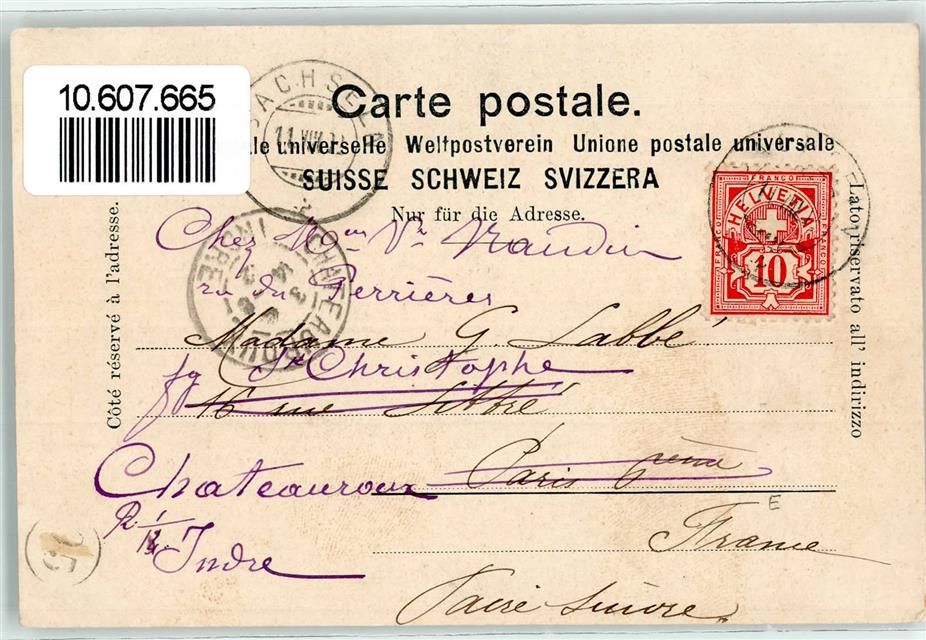 10.607.665
SACHSELN
Carte postale.
le universelle Weltpostverein Unione postale universale
SUISSE SCHWEIZ SVIZZERA
Nur für die Adresse.
Côté réservé à l'adresse.
Lato riservato all' indirizzo
FRANCO
HELVETIA
10
CHATEAUROUX
INDRE
Chez Mme Vr Naudin
ru du Perrières
Madame G. Labbé
fg St Christophe
16 rue Littré
Paris 6ème
Chateauroux
E
Indre
France
Faire suivre